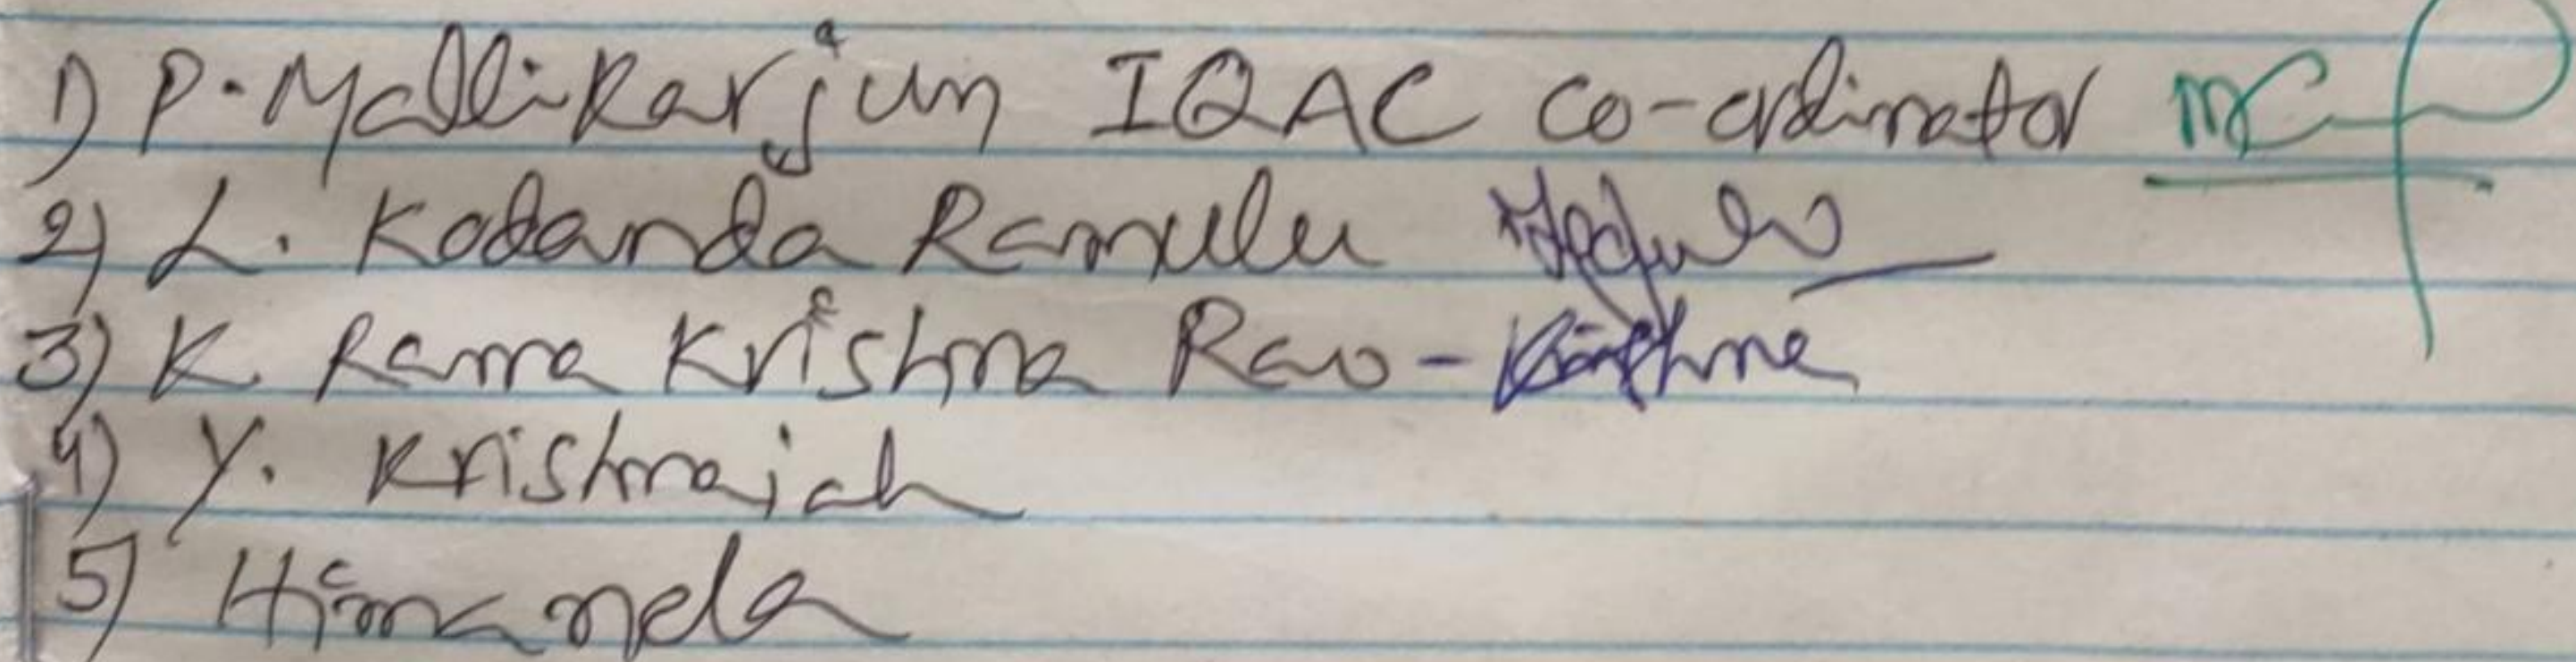 1) P. Mallikarjun IQAC Co-ordinator
2) L. Kodanda Ramulu
3) K. Rama Krishna Rao -
4) Y. Krishnaiah
5) Himanda